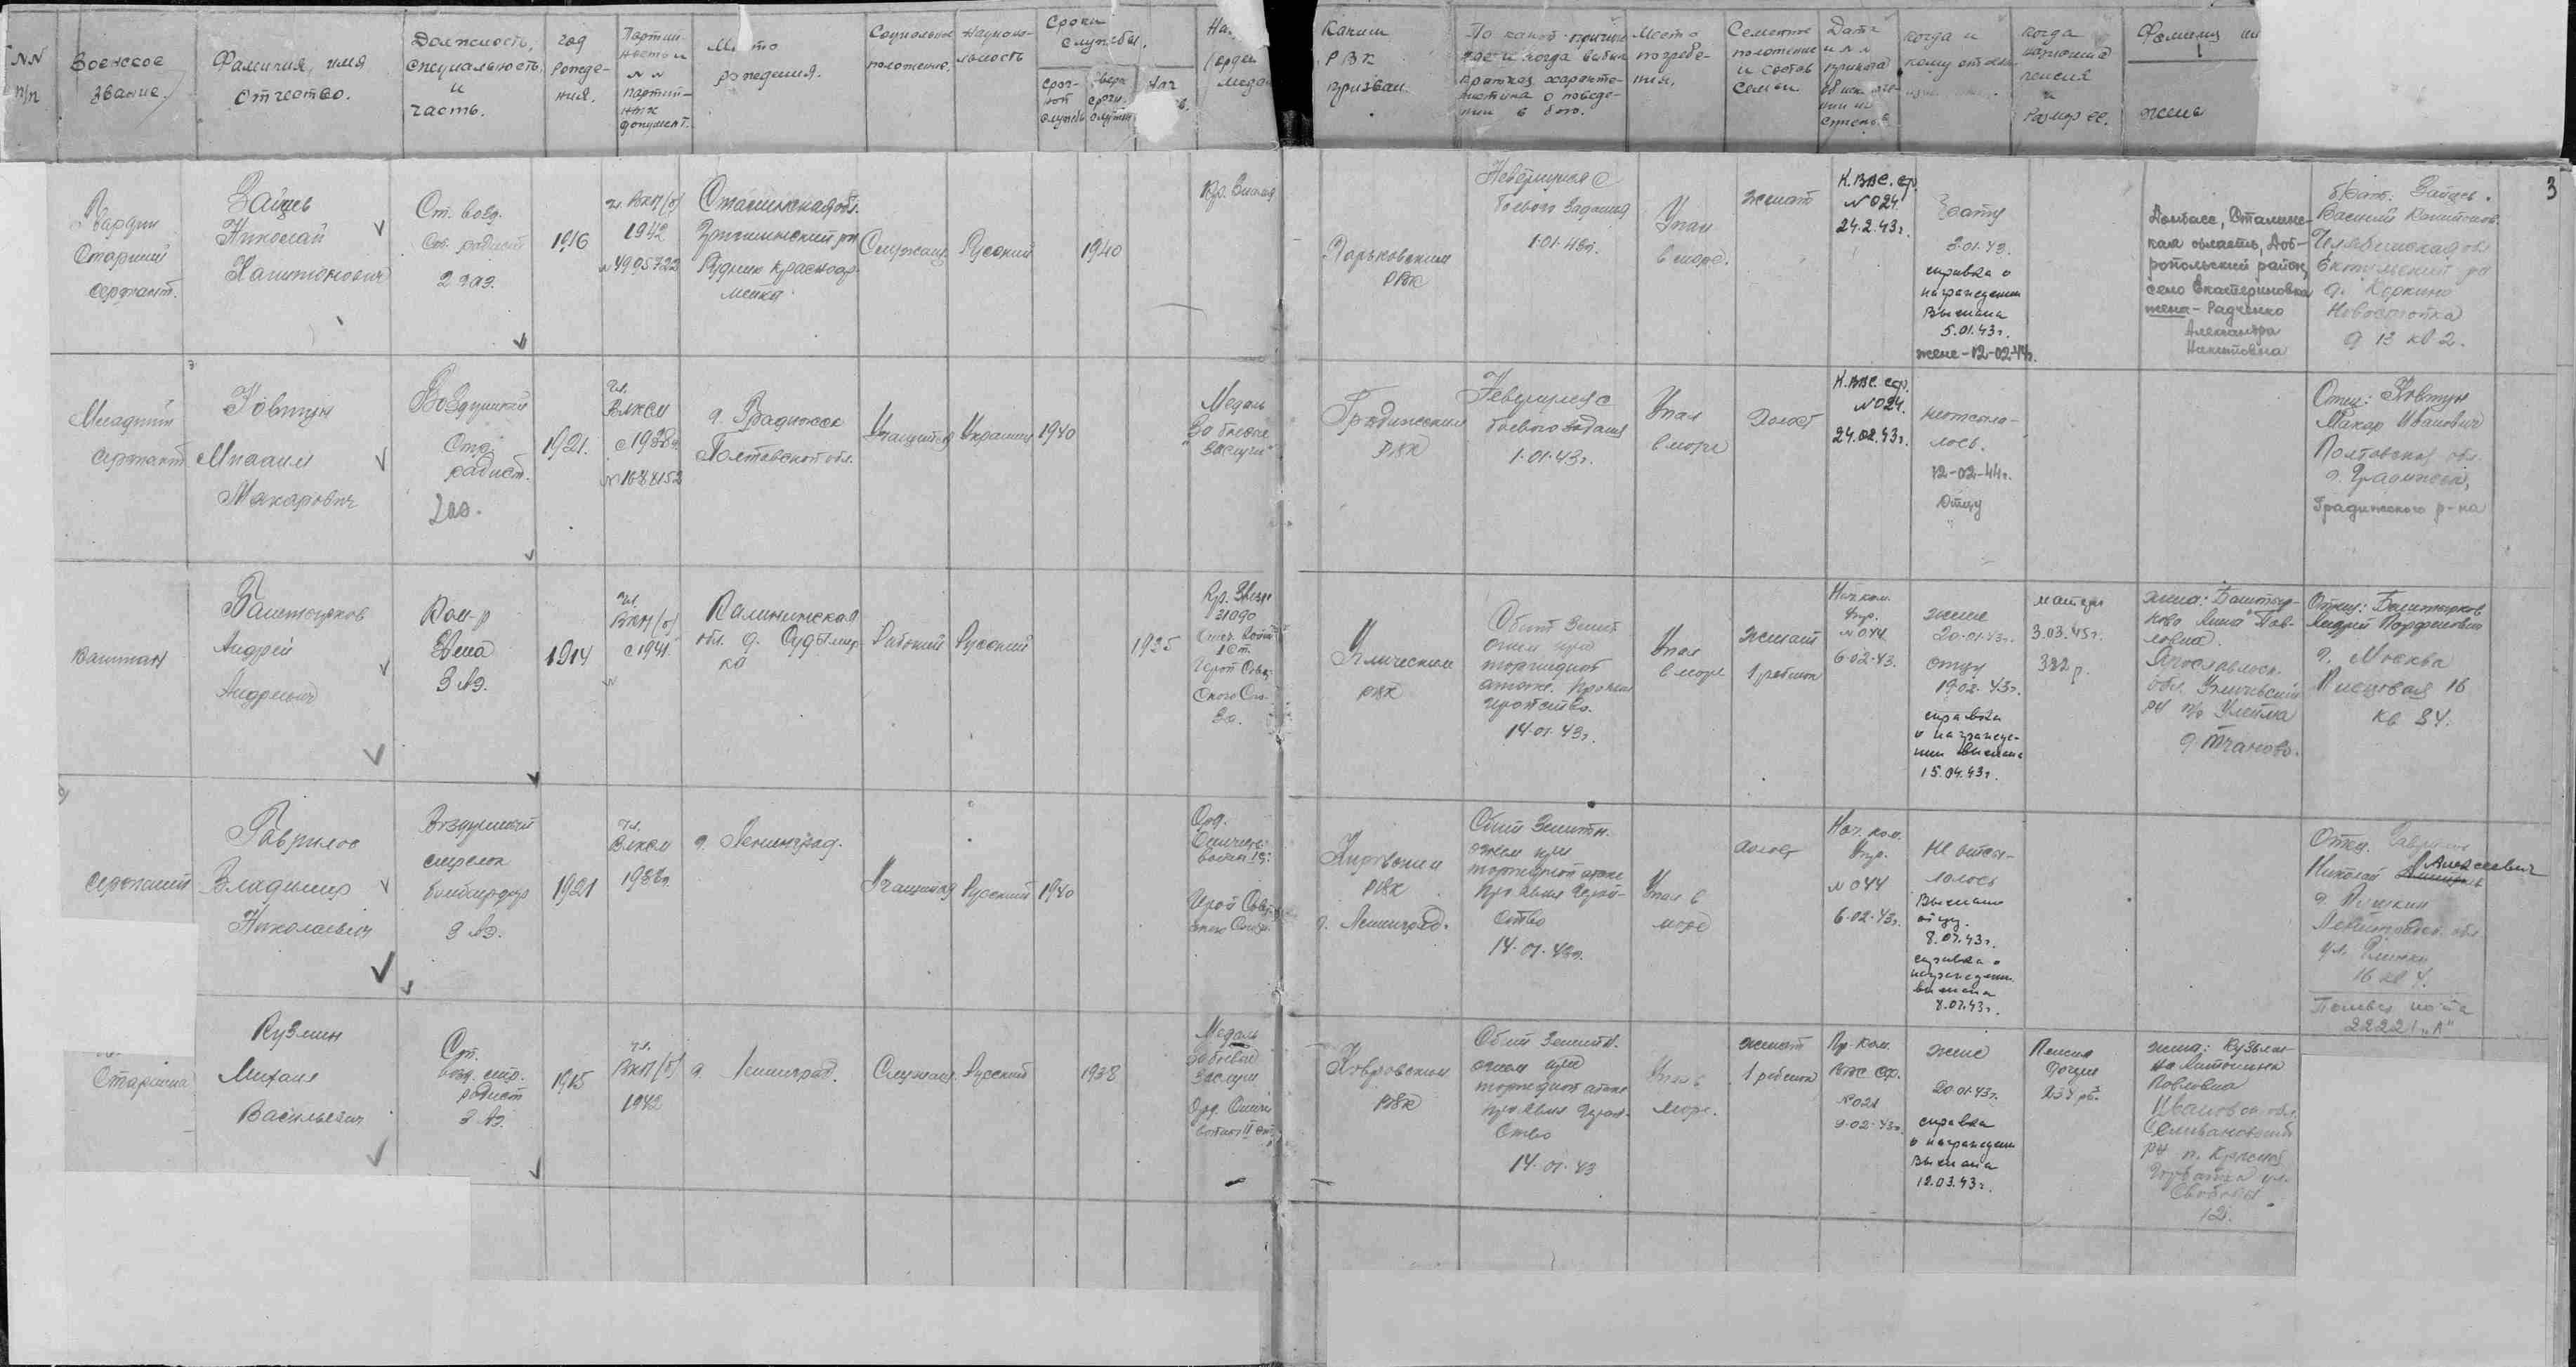 NN
п/п
Воинское
звание.
Фамилия, имя
отчество.
Должность,
специальность
и
часть.
год
рожде-
ния.
Партий-
ность и
NN
партий-
ных
документ.
Место
рождения.
Социальное
положение.
Националь-
ность
Сроки
службы.
сроч-
ной
службы
сверх
сроч.
службы
Нач
На.
(орден
медал
Каким
РВК
призван.
По какой причине
где и когда выбыл
краткая характе-
ристика о поведе-
нии в бою.
Место
погребе-
ния.
Семейное
положение
и состав
семьи
Дата
и NN
приказа
об исключе-
нии из
списков
когда и
кому
когда
назначена
пенсия
и
размер ее.
Фамилия
жены
3
Гвардии
Старший
сержант.
Зайцев
Николай
Капитонович
Ст. возд.
стр. радист
2 аэ.
1916
чл. ВКП(б)
1942
N 4995722
Сталинская обл.
рн
Рудник Красноар-
мейка
Служащ.
Русский
1940
Кр. Знамя
Харьковским
РВК
Невернулся с
боевого задания
1.01.43г.
Упал
в море.
женат
К. ВВС. ср.
N 024.
24.2.43г.
Брату
3.01.43.
справка о
награждении
Выслана
5.01.43г.
жене-12-02-44г.
Донбасс, Сталинс-
кая область, Доб-
ропольский район,
село Екатериновка
жена - Радченко
Александра
Никитовна
брат. Зайцев.
Василий Капитонов.
Челябинская обл
д 13 кв 2.
Младший
сержант
Ковтун
Михаил
Макарович
Воздушный
стр.
радист.
2 аэ.
1921.
чл.
ВЛКСМ
с 1938г.
г. Градижск
Полтавской обл.
Учащийся
Украинец
1940
Медаль
"За боевые
заслуги"
Градижским
РВК
Невернулся с
боевого задания
1.01.43г.
Упал
в море
Холост
К. ВВС. ср.
N 024.
24.02.43г.
неотсыла-
лось.
12-02-44г.
Отцу
Отец: Ковтун
Макар Иванович
Полтавская обл.
г. Градижск,
Градижского р-на
Капитан
Баштырков
Андрей
Андреевич
Ком-р
Звена
3 АЭ.
1914
чл.
ВКП(б)
с 1941
Калининская
обл. д. Судомир-
ка
Рабочий
Русский
1935
Кр. Знамя
Отеч. войн
1 ст.
Герой Совет
ского Сою-
за.
Угличским
РВК
Сбит зенит
огнем при
торпедной
атаке. Проявил
геройство.
14.01.43г.
Упал
в море
женат
1 ребенок
Нач. ком.
Упр.
N 044
6.02.43.
жене
20.01.43г.
отцу
19.02.43г.
справка
о награжде-
нии выслана
15.04.43г.
матери
3.03.45г.
322 р.
жена: Баштыр-
кова Анна Пав-
ловна.
Ярославск.
обл. Угличский
рн п/о Улейма
Отец: Баштырков
Андрей Парфенович
г. Москва
16
кв 34.
сержант
Гаврилов
Владимир
Николаевич
Воздушный
стрелок
бомбардир
3 АЭ.
1921
чл.
ВЛКСМ
1938г.
г. Ленинград.
Учащийся
Русский
1940
Орд.
Отечеств.
войны Iст.
Герой Совет-
ского Союза.
Кировским
РВК
г. Ленинград.
Сбит Зенитн.
огнем при
торпедной атаке
Проявил герой-
ство
14.01.43г.
Упал в
море
холост
Нач. ком.
Упр.
N 044
6.02.43г.
не отсы-
лалось
Выслано
отцу.
8.07.43г.
справка о
награждении
выслана
8.07.43г.
Отец. Гаврилов
Николай Алексеевич
г. Пушкин
Ленинградск. обл.
16 кв 4.
Полевая почта
22221 „А"
Старшина
Кузмин
Михаил
Васильевич
Ст.
возд. стр.
радист
3 АЭ.
1915
чл.
ВКП(б)
1942
г. Ленинград.
Служащ.
Русский
1938
Медаль
За боевые
заслуги
Орд. Отече
войны II ст.
Ковровским
РВК
Сбит Зенитн.
огнем при
торпедной атаке
проявил герой-
ство
14.01.43
Упал в
море.
женат
1 ребенок
Пр. Ком.
ВВС СФ.
N 021
9.02.43г.
жене
20.01.43г.
справка
о награждении
Выслана
12.03.43г.
Пенсия
жена: Кузьми-
на Антонина
Павловна
Ивановск. обл.
Селивановский
рн п. Красная
Горбатка ул.
Свободы
12.